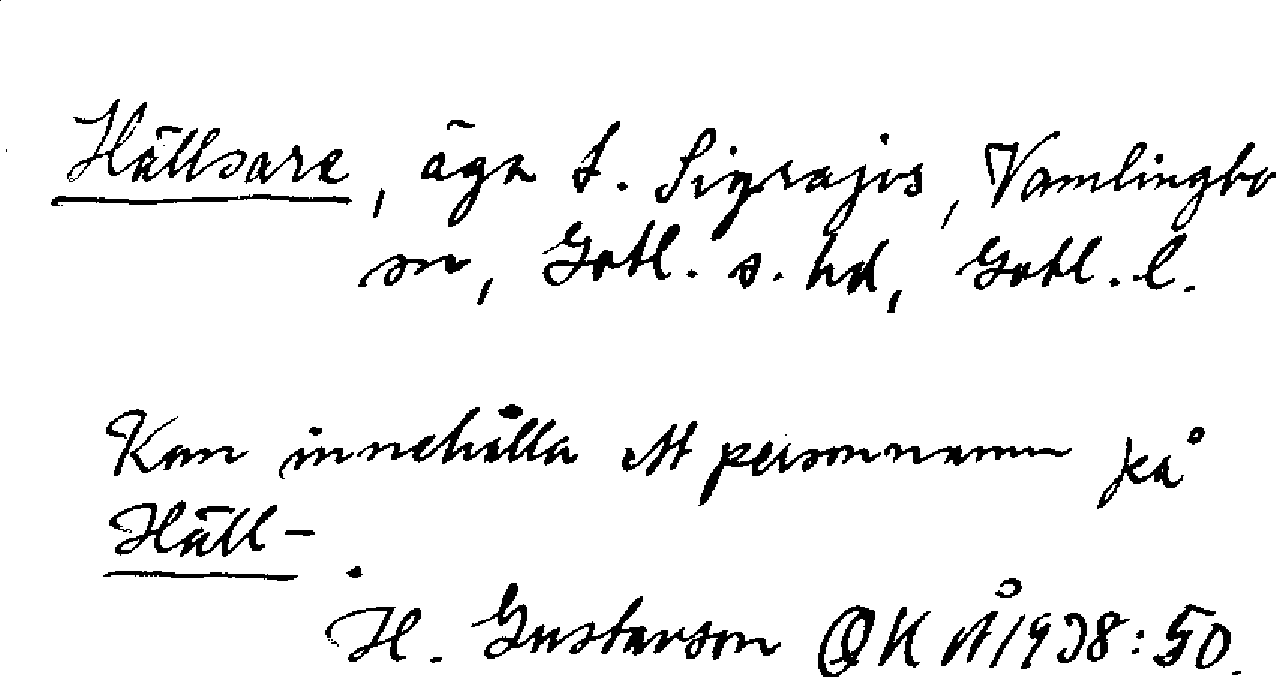 Hällsare, äga t. Sigrajvs, Vamlingbo
sn, Gotl. s. hd, Gotl. l.
Kan innehålla ett personnamn på
Häll-.
H. Gustavson OKÅ 1938:50.